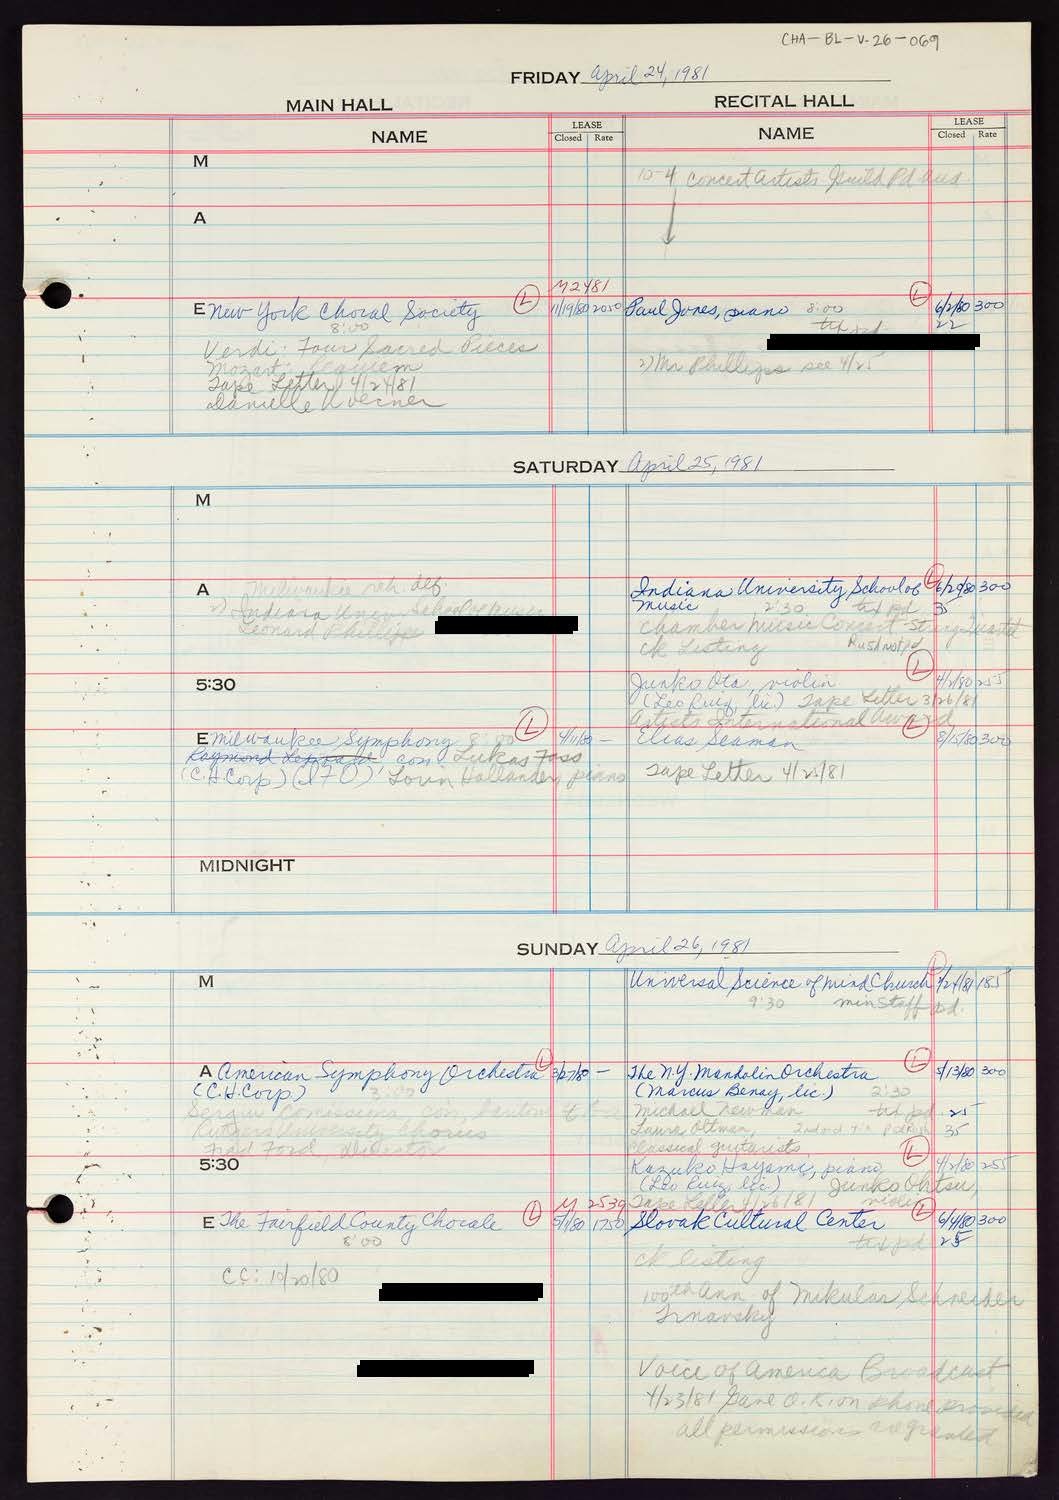 CHA-BL-V-26-069
FRIDAY April 24, 1981
MAIN HALL
RECITAL HALL
NAME
LEASE
Closed Rate
NAME
LEASE
Closed Rate
M
10-4 Concert Artists Guild Pd aud.
A
M2481
E New York Choral Society L 11/19/80 2050
8:00
Verdi: Four Sacred Pieces
Mozart: Requiem
Tape Letter 4/24/81
Danielle Woerner
Paul Jones, piano 8:00 L 6/2/80 300
txs pd. 22
2) Mr Phillips see 4/25
SATURDAY April 25, 1981
M
A Milwaukee reh. def.
2) Indiana Univ School of Music
Leonard Phillips
Indiana University School of L 6/20/80 300
Music 2:30 txs pd 35
Chamber Music Concert - String Quartet
ck Listing
5:30
Junko Ota, violin L 4/2/80 255
(Leo Ruiz, lic.) Tape Letter 3/26/81
Artists International Award
E Milwaukee Symphony 8:00 L 4/11/80 -
Raymond Leppard con Lukas Foss
(C.H. Corp) (IFO) Lorin Hollander, piano
Elias Seaman L 8/15/80 300
Tape Letter 4/25/81
MIDNIGHT
SUNDAY April 26, 1981
M
Universal Science of Mind Church L 185
9:30 min Staff pd.
A American Symphony Orchestra L 3/27/80 -
(C.H. Corp.) 3:00
Sergiu Comissiona, con,
Rutgers University Chorus
Director
The N.Y. Mandolin Orchestra L 5/13/80 300
(Marcus Benay, lic.) 2:30
Michael Newman txs pd. 25
Laura Oltman, 35
classical guitarists
5:30
Kazuko Hayami, piano L 4/2/80 255
(Leo Ruiz, lic) Junko Ohtsu,
Tape Letter 4/26/81 violin
M 2539
E The Fairfield County Chorale L 5/1/80 1750
8:00
C.C: 10/20/80
Slovak Cultural Center L 6/4/80 300
txs pd 25
ck listing
100th Ann of Mikulas Schneider
Trnavsky
Voice of America Broadcast
4/23/81 Gave O.K. on phone provided
all permissions are granted